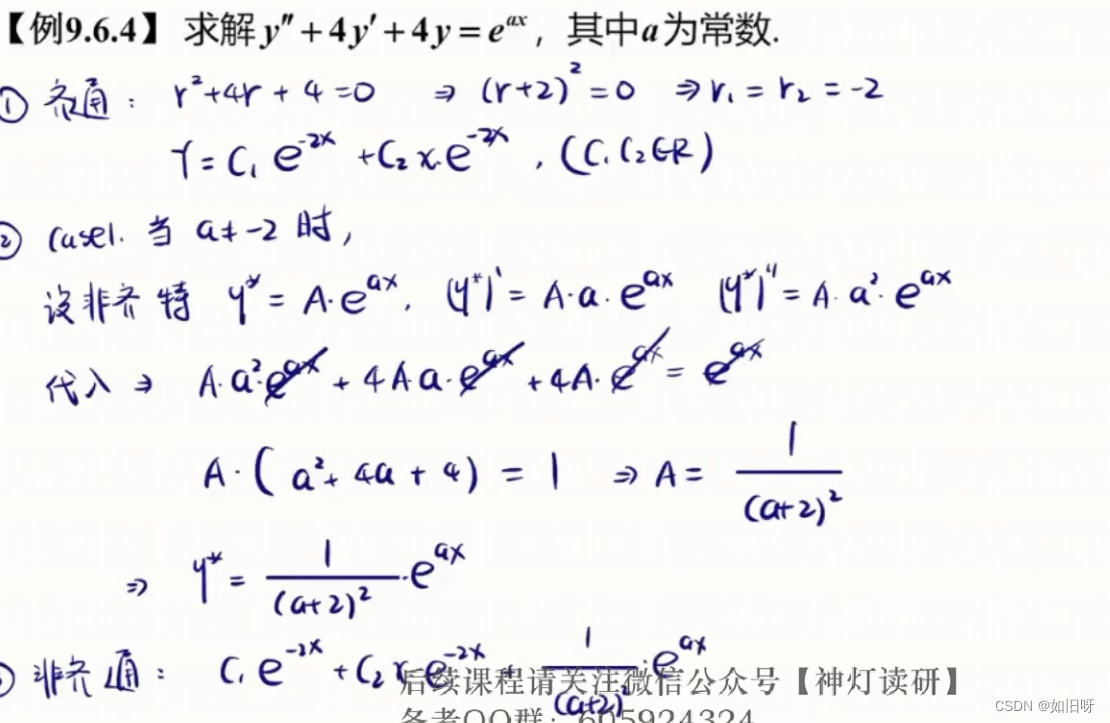 【例9.6.4】求解 y″+4y′+4y=e^{ax}，其中a为常数.
① 齐通: r²+4r+4=0 ⇒ (r+2)²=0 ⇒ r₁=r₂=-2
Y=C₁e^{-2x}+C₂x·e^{-2x}, (C₁C₂∈R)
② case1. 当 a≠-2 时,
设非齐特 y*=A·e^{ax}, (y*)'=A·a·e^{ax} (y*)''=A·a²·e^{ax}
代入 ⇒ A·a²·e^{ax}+4Aa·e^{ax}+4A·e^{ax}=e^{ax}
A·(a²+4a+4)=1 ⇒ A=1/(a+2)²
⇒ y*=1/(a+2)²·e^{ax}
非齐通: C₁e^{-2x}+C₂x·e^{-2x}+1/(a+2)²·e^{ax}
后续课程请关注微信公众号【神灯读研】
备考QQ群: 605924324
CSDN @如旧呀